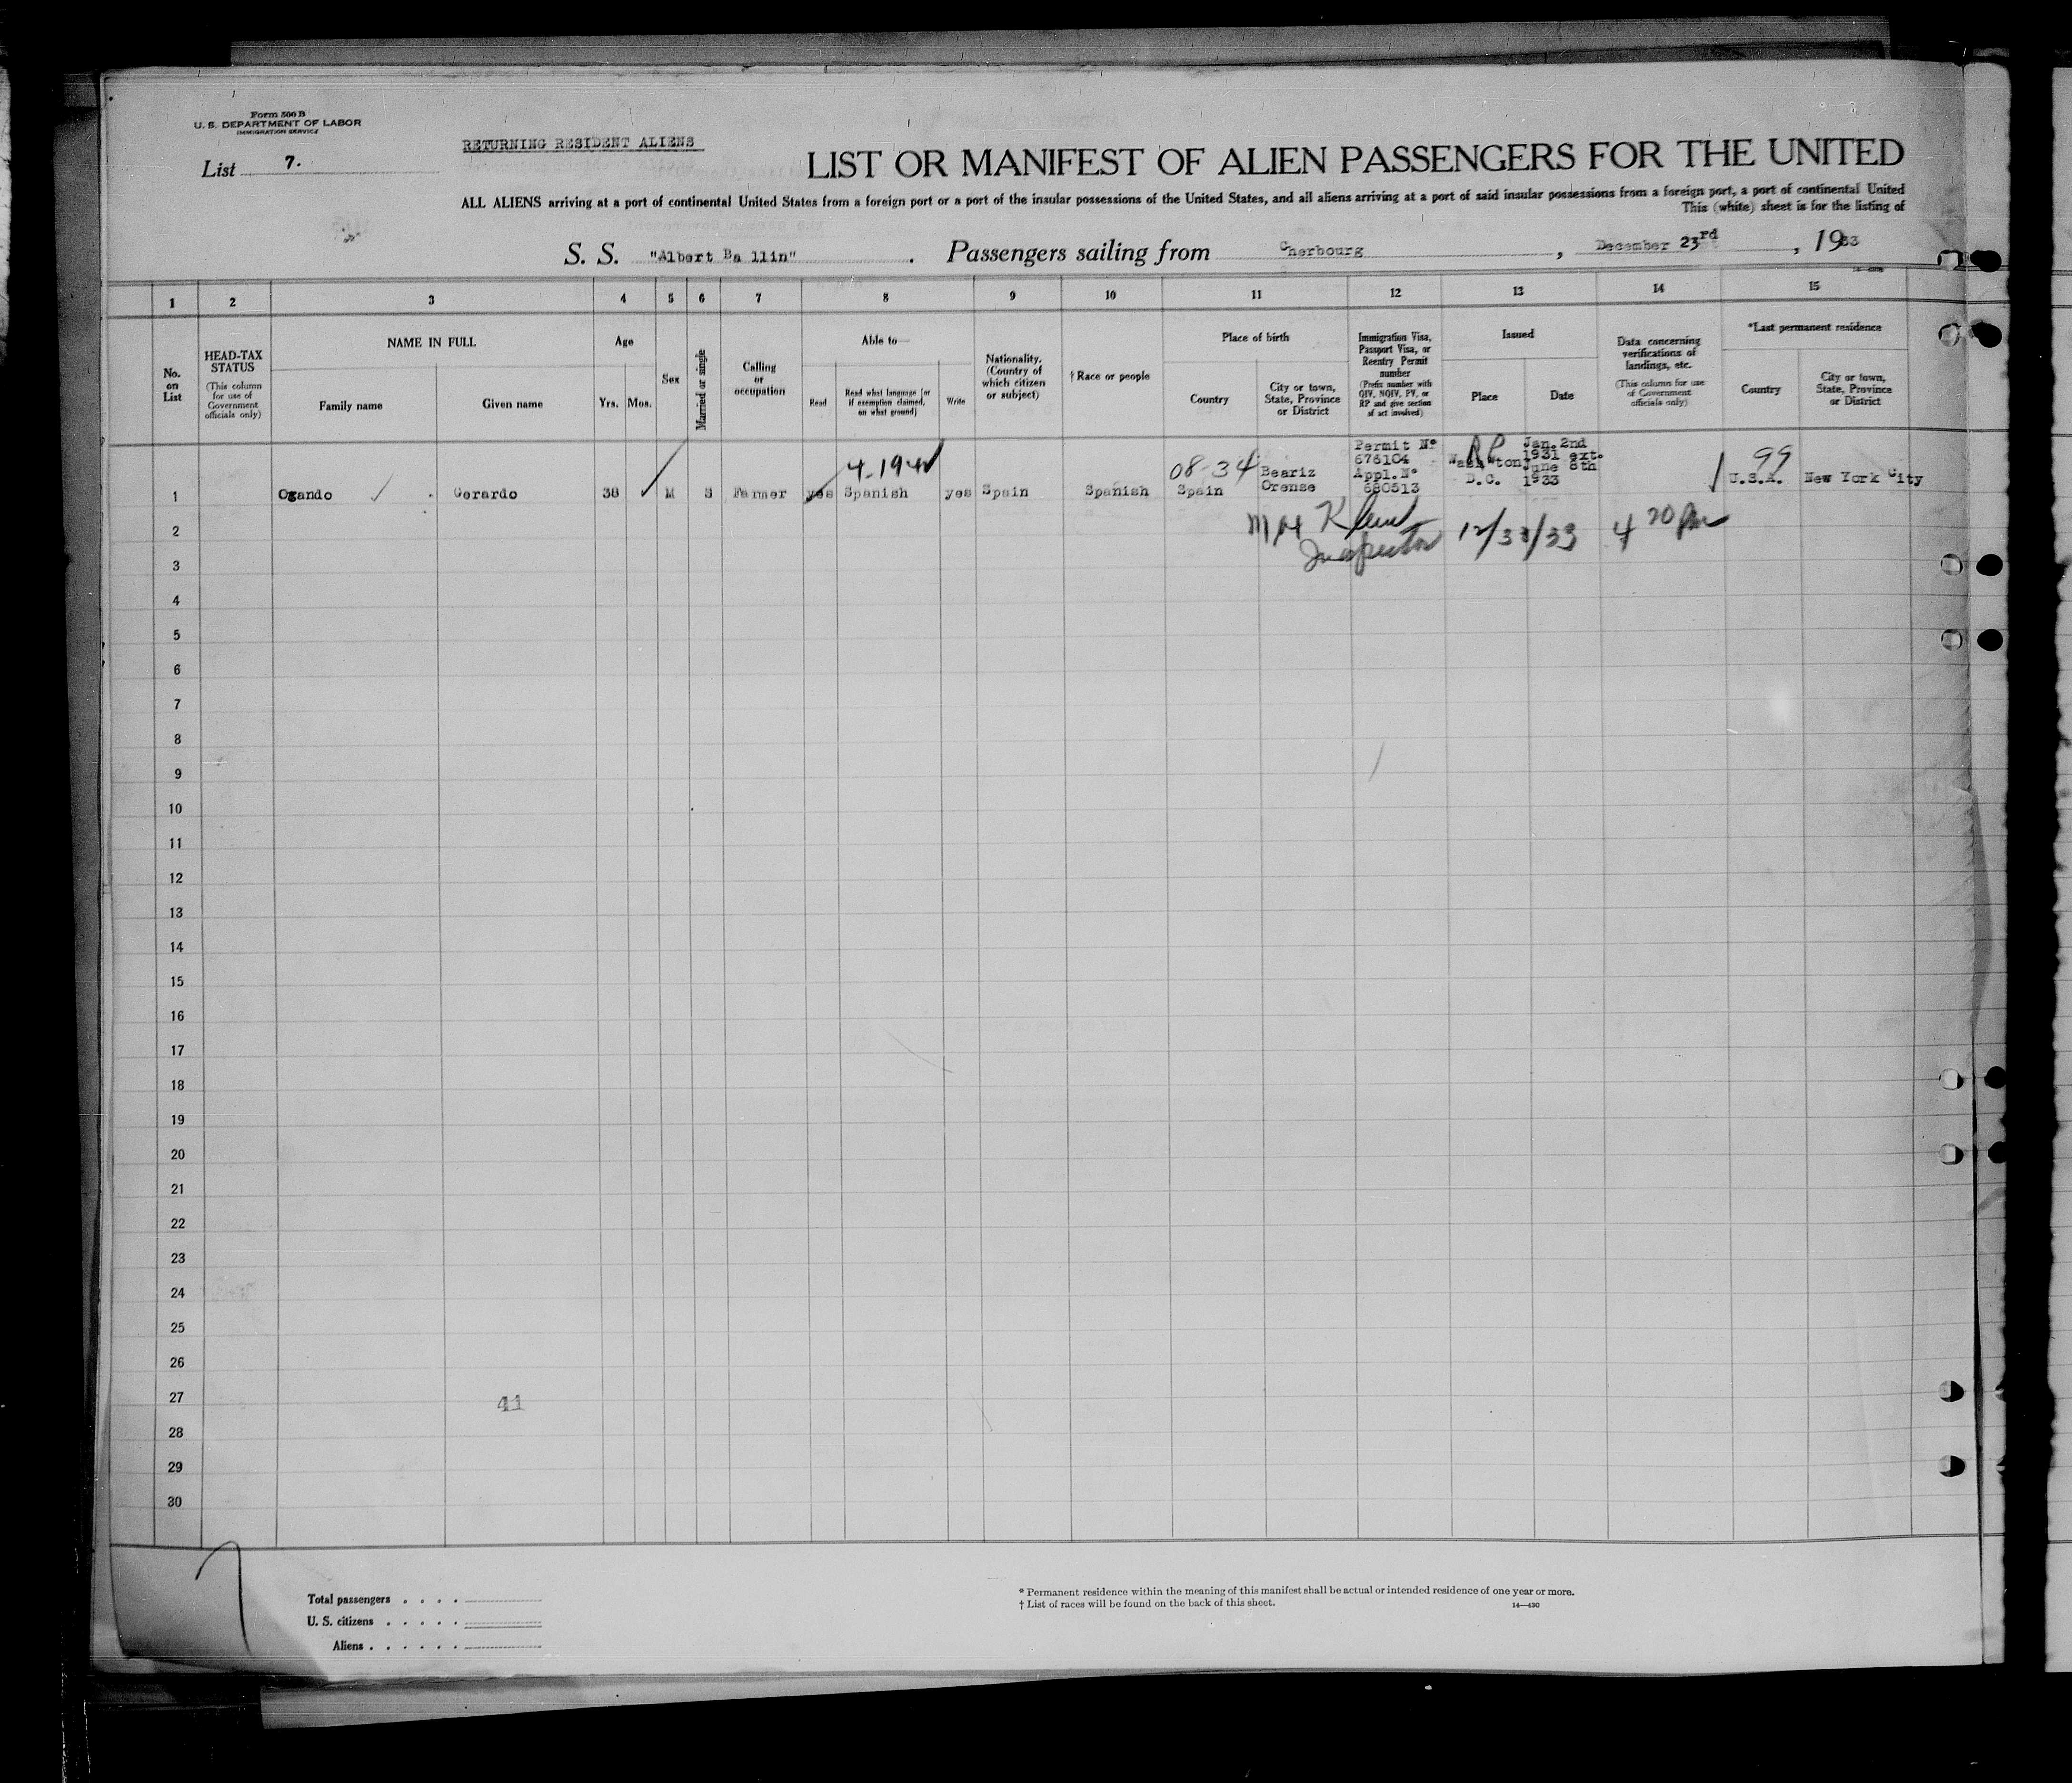 Form 500 B
U. S. DEPARTMENT OF LABOR
IMMIGRATION SERVICE
List 7.
RETURNING RESIDENT ALIENS
LIST OR MANIFEST OF ALIEN PASSENGERS FOR THE UNITED
ALL ALIENS arriving at a port of continental United States from a foreign port or a port of the insular possessions of the United States, and all aliens arriving at a port of said insular possessions from a foreign port, a port of continental United
This (white) sheet is for the listing of
S. S. "Albert Ballin" . Passengers sailing from Cherbourg , December 23rd , 1933
1 2 3 4 5 6 7 8 9 10 11 12 13 14 15
No. on List
HEAD-TAX STATUS
(This column for use of Government officials only)
NAME IN FULL
Family name
Given name
Age
Yrs. Mos.
Sex
Married or single
Calling or occupation
Able to—
Read
Read what language [or if exemption claimed, on what ground]
Write
Nationality. (Country of which citizen or subject)
† Race or people
Place of birth
Country
City or town, State, Province or District
Immigration Visa, Passport Visa, or Reentry Permit number
(Prefix number with QIV, NQIV, PV, or RP and give section of act involved)
Issued
Place
Date
Data concerning verifications of landings, etc.
(This column for use of Government officials only)
*Last permanent residence
Country
City or town, State, Province or District
4-19-41
08-34
RP
99
1 Ogando Gerardo 38 M S Farmer yes Spanish yes Spain Spanish Spain Beariz Orense Permit No 676104 Appl. No 680513 Wash'ton D.C. Jan. 2nd 1931 ext. June 8th 1933 U.S.A. New York City
2
Inspector
4 20 pm
3
4
5
6
7
8
9
10
11
12
13
14
15
16
17
18
19
20
21
22
23
24
25
26
27
41
28
29
30
Total passengers . . . .
U. S. citizens . . . . .
Aliens . . . . . .
* Permanent residence within the meaning of this manifest shall be actual or intended residence of one year or more.
† List of races will be found on the back of this sheet.
14—430